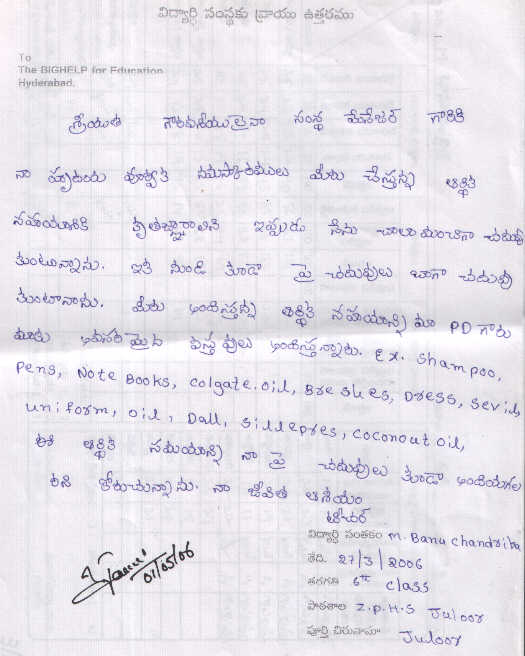 విద్యార్థి సంస్థకు వ్రాయు ఉత్తరము
To
The BIGHELP for Education
Hyderabad.
శ్రీయుత గౌరవనీయులైన సంస్థ మేనేజర్ గారికి
నా హృదయ పూర్వక నమస్కారములు మీరు చేస్తున్న ఆర్థిక
సహయానికి కృతజ్ఞురాలిని ఇప్పుడు నేను చాలా మంచిగా చదువు
కుంటున్నాను. ఇక నుండి కూడా పై చదువులు బాగా చదువు
కుంటానను. మీరు అందిస్తున్న ఆర్థిక సహయాన్ని మా PD గారు
మాకు అవసరమైన వస్తువులు అందిస్తున్నారు. Ex. Shampoo,
Pens, Note Books, colgate. oil, Breshes, Dress,
uniform, oil, Dall, Silleepres, coconout oil,
ఈ ఆర్థిక సహయాన్ని నా పై చదువులు కూడా అందియగల
రని కోరుచున్నాను. నా జీవిత ఆశయం
టీచర్
విద్యార్థి సంతకం M. Banu chandrika
తేది. 27/3/2006
తరగతి 6th class
పాఠశాల Z.P.H.S Juloor
పూర్తి చిరునామా Juloor
01/05/06